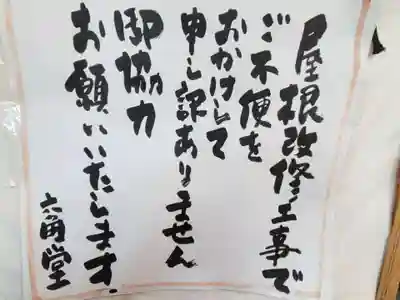 屋根改修工事で
ご不便を
おかけして
申し訳ありません
御協力
お願いいたします.
六角堂